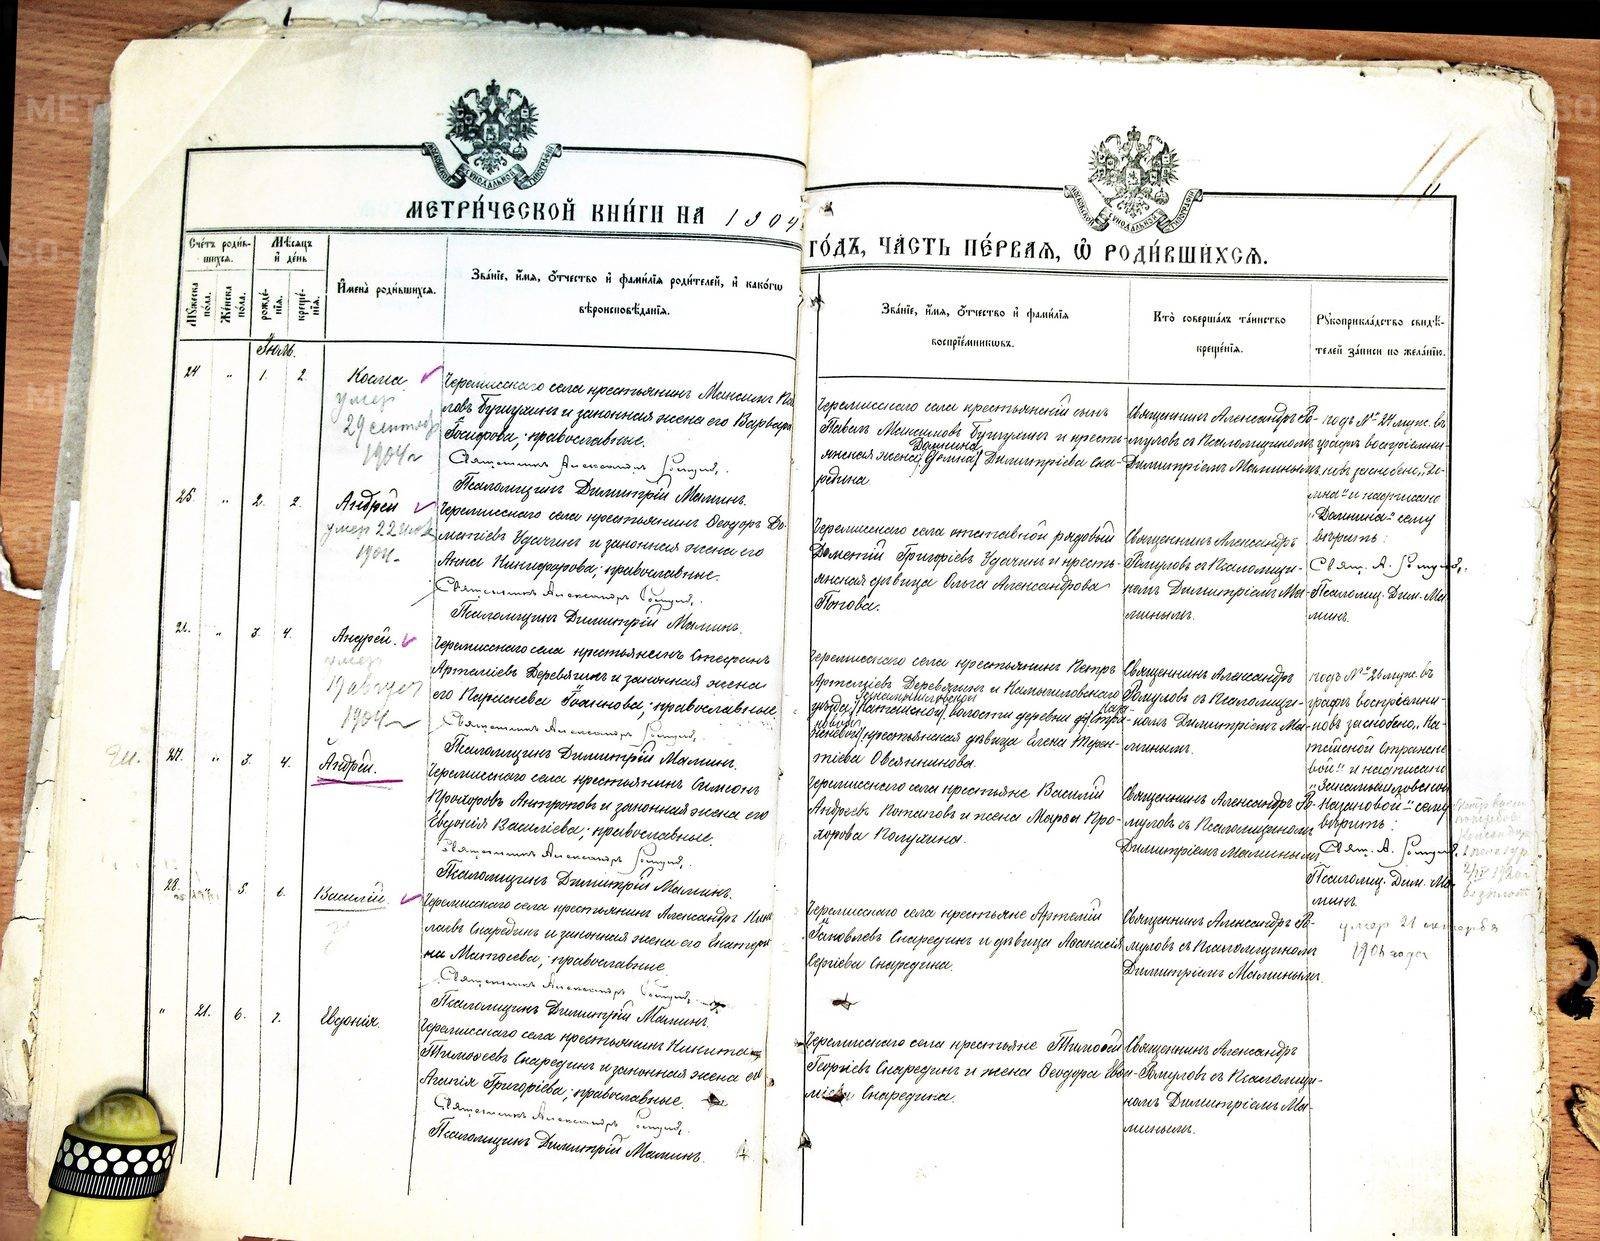 МЕТРИ́ЧЕСКОЙ КНИ́ГИ НА 1904
ГО́ДЪ, ЧА́СТЬ ПЕ́РВАЯ, Ѡ҆ РОДИ́ВШИХСЯ.
11
Сче́тъ роди́в-
шихся.
Мѣ́сяцъ
и҆ де́нь
Му́жеска
по́ла.
Же́нска
по́ла.
рожде́-
нїя.
креще́-
нїя.
И҆мена̀ роди́вшихся.
Зва́нїе, и҆́мя, ѻ҆́тчество и҆ фами́лїя роди́телей, и҆ како́гѡ
вѣроисповѣ́данїя.
Зва́нїе, и҆́мя, ѻ҆́тчество и҆ фами́лїя
воспрїе́мникѡвъ.
Кто̀ соверша́лъ та́инство
креще́нїя.
Рꙋкоприкла́дство свидѣ́-
телей за́писи по жела́нїю.
Іюль.
24 " 1. 2.
Косма
умер
29 сентяб
1904 г
Черемисскаго села крестьянинъ Максимъ Па
ловъ Бушухинъ и законная жена его Варвара
православные.
Священникъ Александръ Ромулов.
Псаломщикъ Димитрій Маминъ.
Черемисскаго села крестьянскій сынъ
Павелъ Максимовъ Бушухинъ и кресть-
янская жена (Домна) Домнина Димитріева Сна-
редина
Священникъ Александръ Ро-
муловъ съ Псаломщикомъ
Димитріемъ Маминымъ
подъ № 24 муж. въ
графѣ воспріемни-
ковъ заскоблено „До-
мна" и надписано
„Домнина" сему
вѣрить:
Свящ. А. Ромулов.
Псаломщ. Дим. Ма-
минъ.
25 " 2. 2.
Андрей
умер 22 июля
1904
Черемисскаго села крестьянинъ Ѳеодоръ До-
метіевъ Удачинъ и законная жена его
Анна Никифорова; православные.
Священникъ Александръ Ромулов.
Псаломщикъ Димитрій Маминъ.
Черемисскаго села отставной рядовый
Дометій Григоріевъ Удачинъ и кресть-
янская дѣвица Ольга Александрова
Попова.
Священникъ Александръ
Ромуловъ съ Псаломщи-
комъ Димитріемъ Ма-
минымъ.
26. " 3. 4.
Андрей.
умер
19 август
1904 г
Черемисскаго села крестьянинъ Стефанъ
Артеміевъ Деревягинъ и законная жена
его Параскева Іоаннова; православные.
Священникъ Александръ Ромулов.
Псаломщикъ Димитрій Маминъ.
Черемисскаго села крестьянинъ Петръ
Артеміевъ Деревягинъ и Камышловскаго
уѣзда волости деревни
крестьянская дѣвица Елена Терен-
тіева Овсянникова.
Священникъ Александръ
Ромуловъ съ Псаломщи-
комъ Димитріемъ Ма-
минымъ.
подъ № 26 муж. въ
графѣ воспріемни-
ковъ заскоблено „Ка-
и надписано
сему
вѣрить:
Свящ. А. Ромулов.
Псаломщ. Дим. Ма-
минъ.
27. " 3. 4.
Андрей.
Черемисскаго села крестьянинъ Симеонъ
Прохоровъ Антроповъ и законная жена его
Евдокія Василіева; православные.
Священникъ Александръ Ромулов.
Псаломщикъ Димитрій Маминъ.
Черемисскаго села крестьяне Василій
Андреевъ Потаповъ и жена Марѳа Про-
хорова Полухина.
Священникъ Александръ Ро-
муловъ съ Псаломщикомъ
Димитріемъ Маминымъ
28. 5. 6.
Василій.
Черемисскаго села крестьянинъ Александръ Нико
лаевъ Снарединъ и законная жена его Екатери
на Матѳеева; православные.
Священникъ Александръ Ромулов.
Псаломщикъ Димитрій Маминъ.
Черемисскаго села крестьяне Артемій
Іаковлевъ Снарединъ и дѣвица Аѳанасія
Сергіева Снаредина.
Священникъ Александръ Ро-
муловъ съ Псаломщикомъ
Димитріемъ Маминымъ.
умер 21 октября
года
" 21. 6. 7.
Евдокія.
Черемисскаго села крестьянинъ Никита
Тимоѳеевъ Снарединъ и законная жена его
Агапія Григоріева; православные.
Священникъ Александръ Ромулов.
Псаломщикъ Димитрій Маминъ.
Черемисскаго села крестьяне Тимоѳей
Георгіевъ Снарединъ и жена Ѳеодора Евѳи-
міева Снаредина.
Священникъ Александръ
Ромуловъ съ Псаломщи-
комъ Димитріемъ Ма-
минымъ.